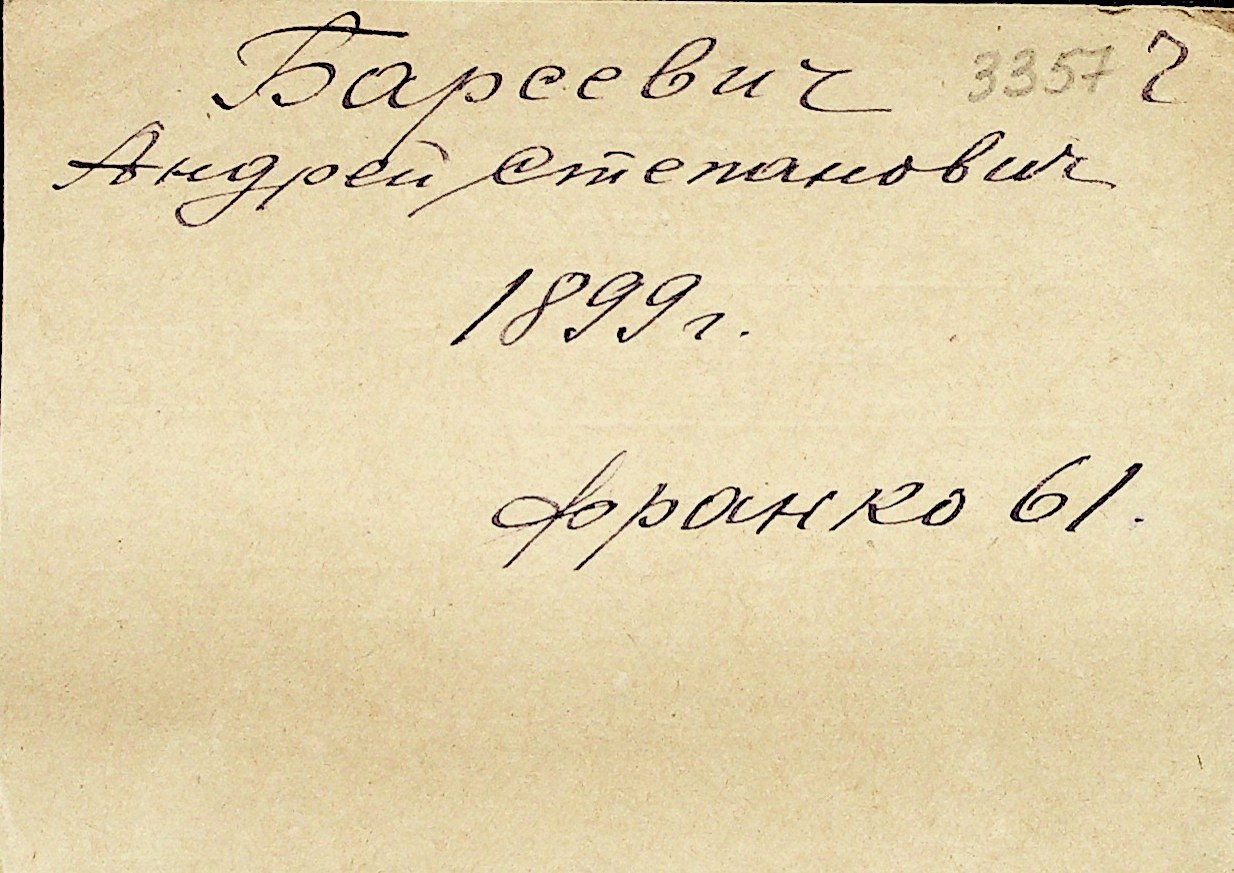 Барсевич 3357 2
Андрей Степанович
1899 г.
Франко 61.